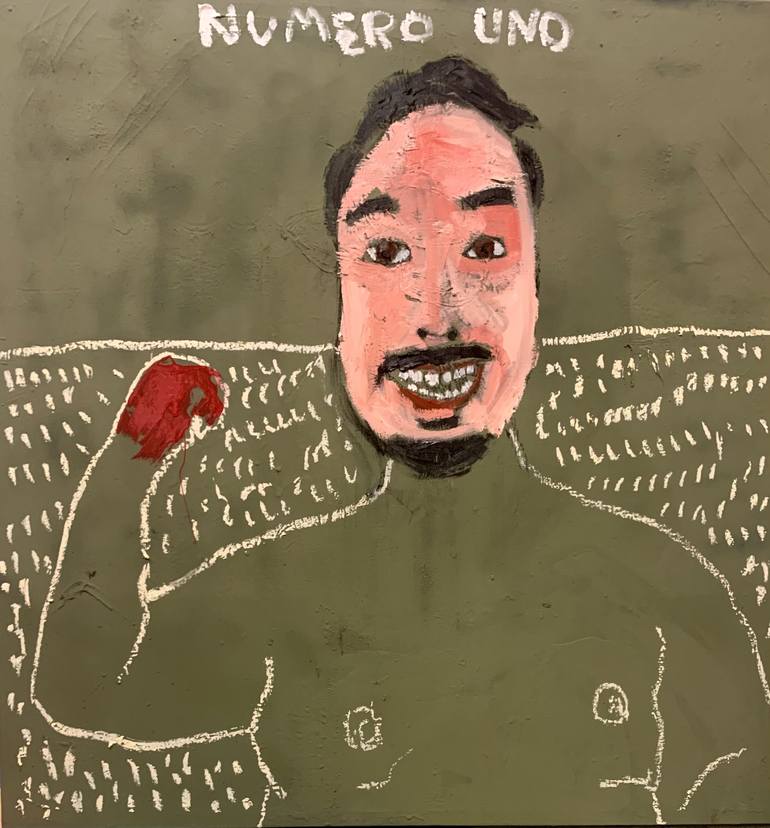 NUMERO UNO